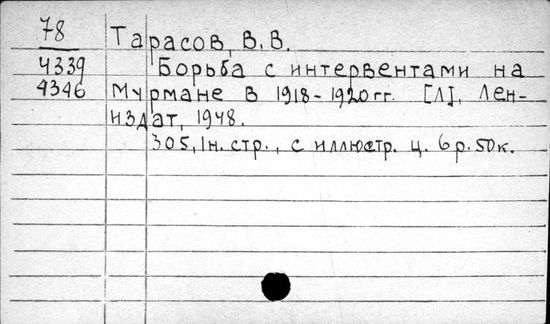 78
Тарасов, В. В.
4339
Борьба с интервентами на
4346
Мурмане в 1918-1920 гг. [Л], Лен-
издат, 1948.
305, 1н. стр., с иллюстр. ц. 6 р. 50к.